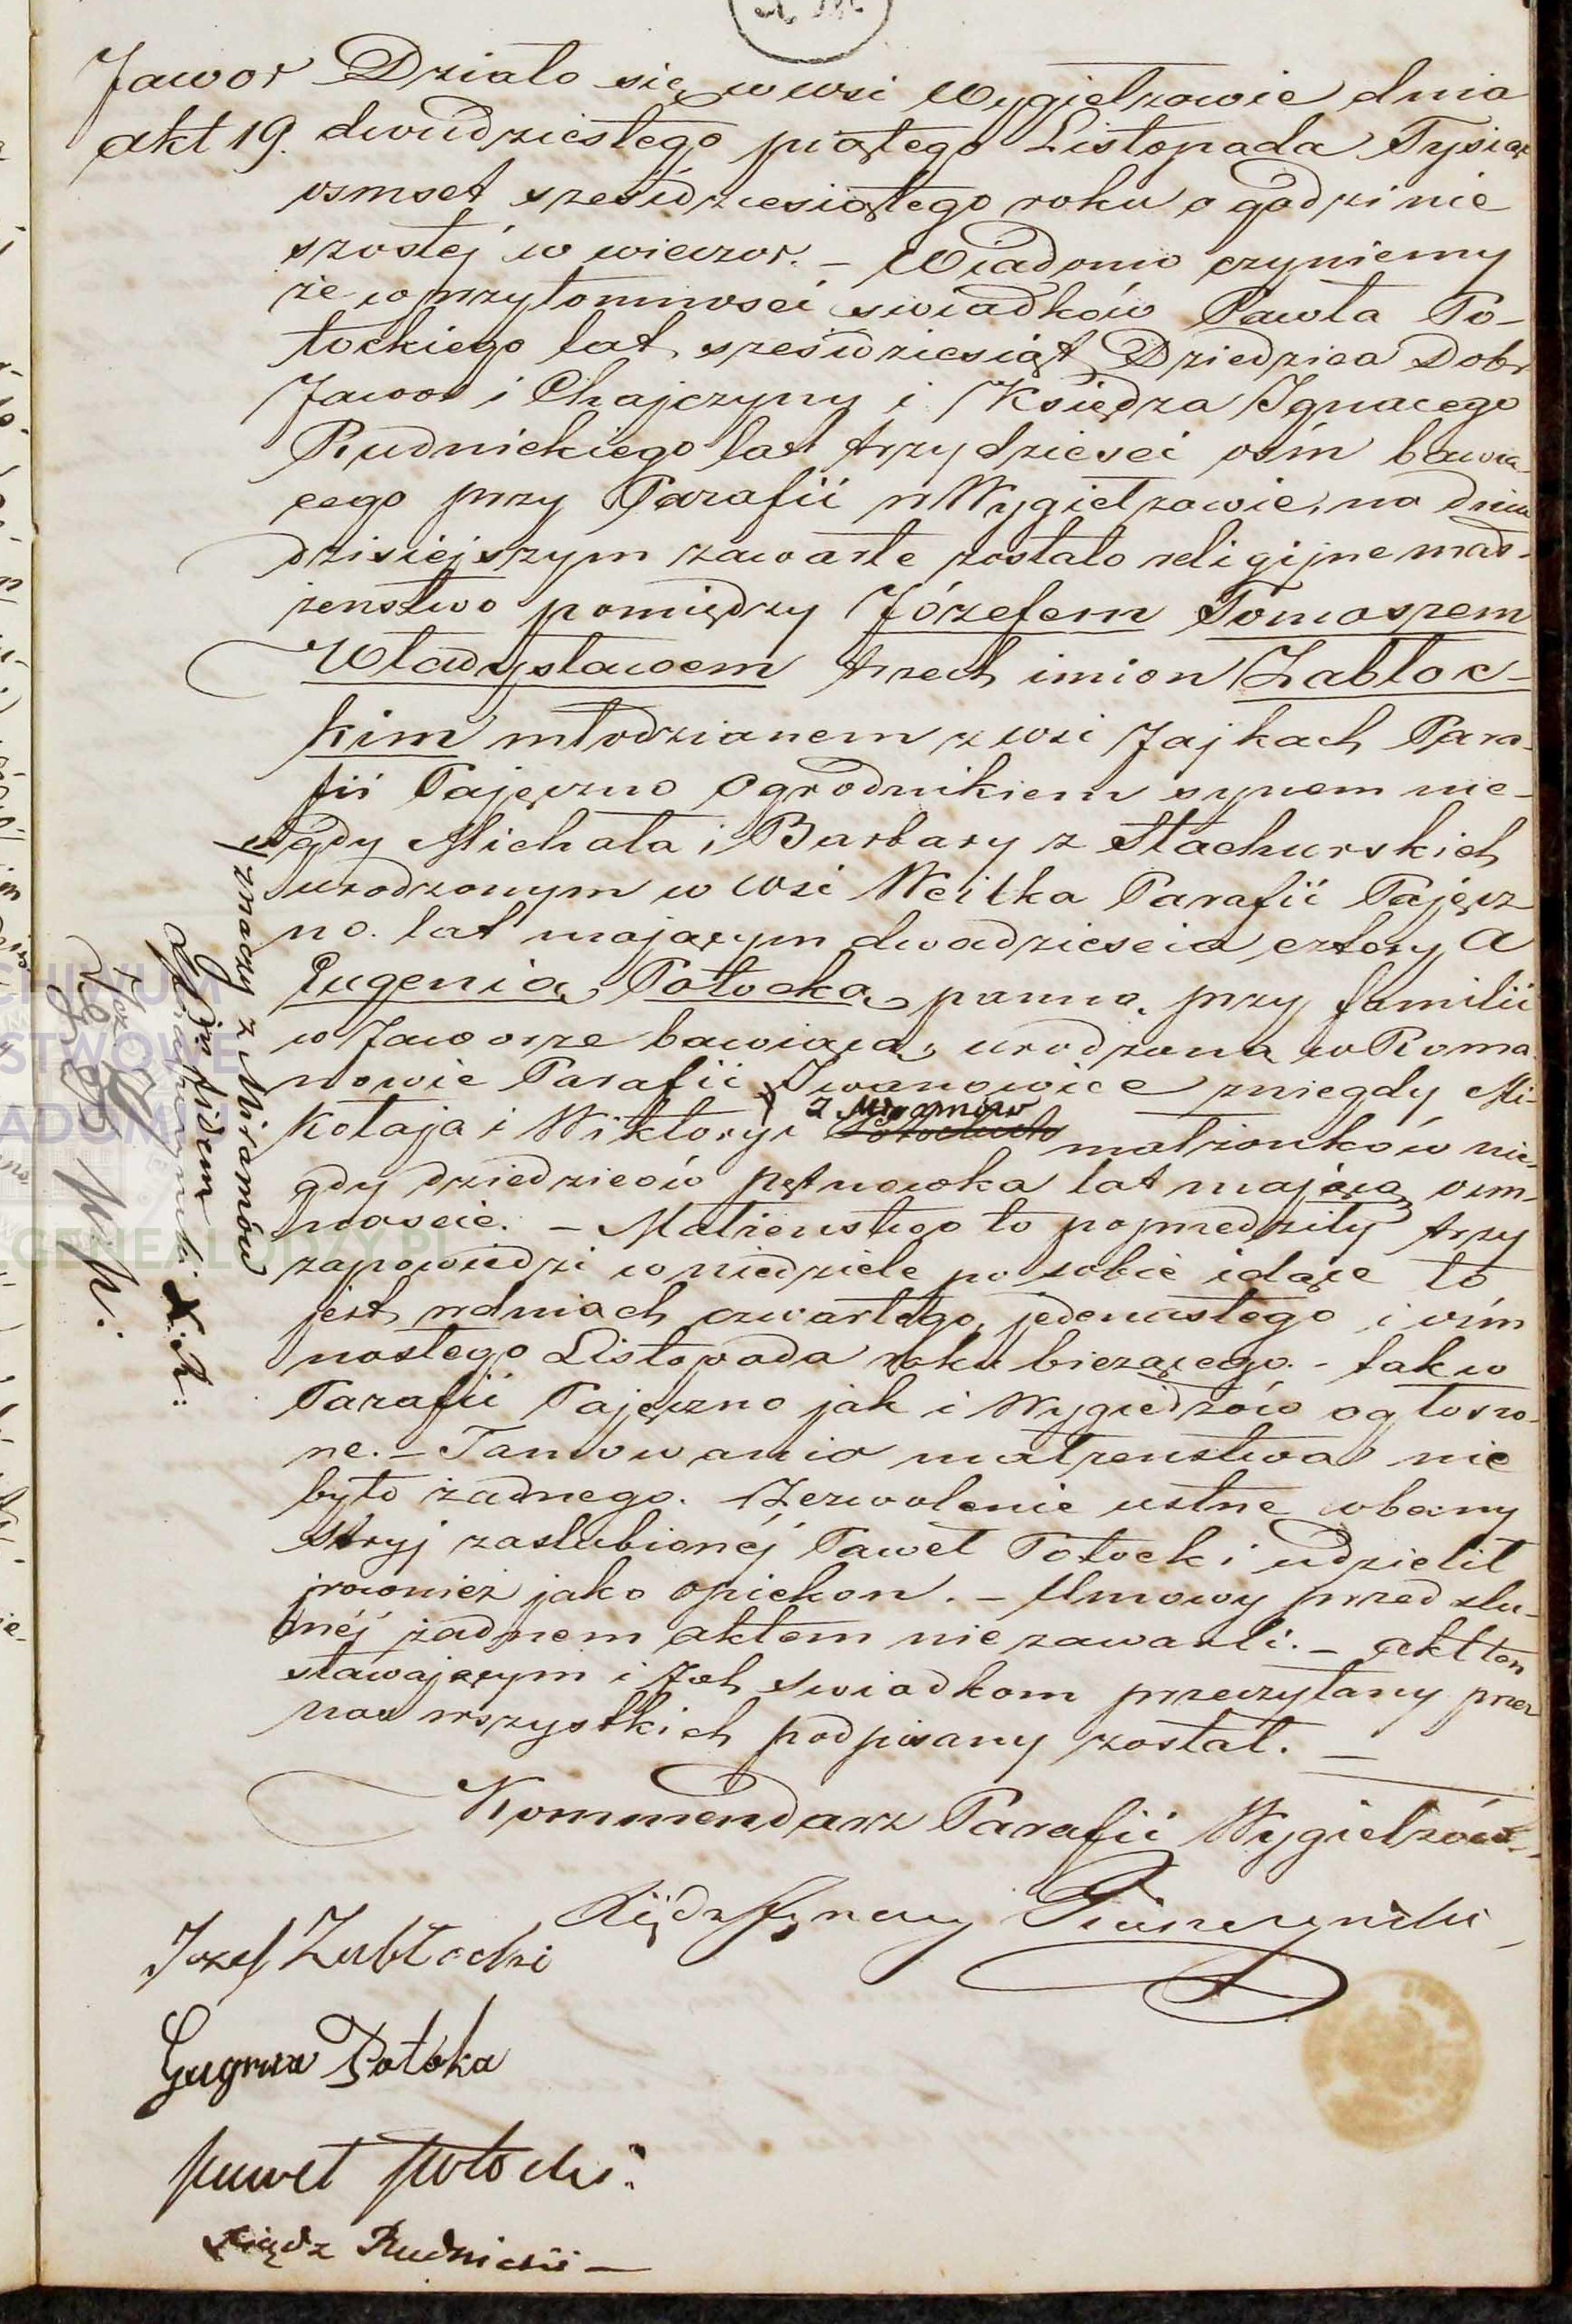 Jawor Działo się w wsi Wygiełzowie dnia
akt 19. dwudziestego piątego Listopada Tysiąc
osmset sześćdziesiątego roku o godzinie
szostej w wieczor. – Wiadomo czyniemy
że w przytomnosci swiadków Pawła Po-
tockiego lat sześćdziesiąt Dziedzica Dobr
Jawor i Chajczyny i Księdza Ignacego
Rudnickiego lat trzydziesci ośm bawią-
cego przy Parafii w Wygiełzowie, na dniu
dzisiejszym zawarte zostało religijne mał-
żenstwo pomiędzy Józefem Tomaszem
Władysławem trzech imion Zabłoc-
kim młodzianem z wsi Jajkach Para-
fii Pajęczno Ogrodnikiem synem nie-
gdy Michała i Barbary z Stachurskich
urodzonym w wsi Wcitka Parafii Pajęcz
no. lat mającym dwadziescia cztery a
Eugenią Potocką panną przy familii
w Jaworze bawiącą, urodzona w Roma
nowie Parafii Iwanowice z niegdy Mi-
kołaja i Wiktoryi z Miramów Potockich małżonków nie-
gdy dziedziców Pętnowka lat mającą ośm-
nascie. – Małżenstwo to poprzedziły trzy
zapowiedzi w niedziele po sobie idące to
jest w dniach czwartego, jedenastego i ośm
nastego Listopada roku bieżącego. – tak w
Parafii Pajęczno jak i Wygiełzów ogłoszo-
ne. – Tamowania małżenstwa nie
było żadnego. Zezwolenie ustne obecny
Stryj zaslubionéj Paweł Potocki udzielił
jrownież jako opiekon. – Umowy przed slu-
bnéj żadnem aktem nie zawarli. – Akt ten
stawającym i tych swiadkom przeczytany przez
nas wszystkich podpisany został. –
Kommendarz Parafii Wygiełzów
Ksiądz Ignacy
Jozef Zabłocki
Eugenia Potocka
Paweł Potocki.
Xiądz Rudnicki –
znaczy z Miramów